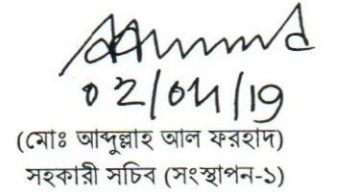 ০2/04/19
(মোঃ আব্দুল্লাহ আল ফরহাদ)
সহকারী সচিব (সংস্থাপন-১)